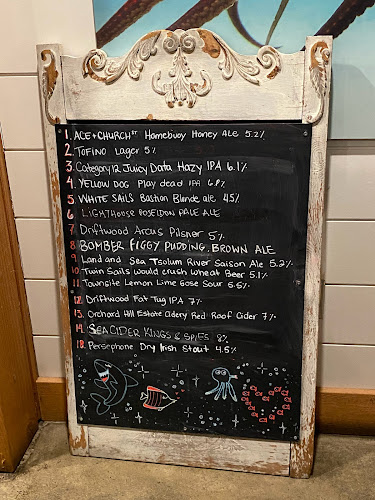 1. ACE + CHURCH ST Homebuoy Honey Ale 5.2%
2. TOFINO Lager 5%
3. Category 12 Juicy Data Hazy IPA 6.1%
4. YELLOW DOG Play dead IPA 6.8%
5. WHITE SAILS Bastion Blonde ale 4.5%
6. LIGHTHOUSE POSEIDON PALE ALE
7. Driftwood Arcus Pilsner 5%
8. BOMBER FIGGY PUDDING, BROWN ALE
9. Land and Sea Tsolum River Saison Ale 5.2%
10. Twin Sails would crush Wheat Beer 5.1%
11. Townsite Lemon Lime Gose Sour 5.5%
12. Driftwood Fat Tug IPA 7%
13. Orchard Hill Estate Cidery Red Roof Cider 7%
14. SEACIDER KINGS & SPIES 8%
15. Persephone Dry Irish Stout 4.5%